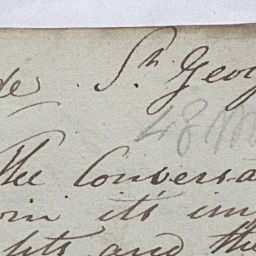 de. St. Geor
48
The Conversa
in it's im
hts and the